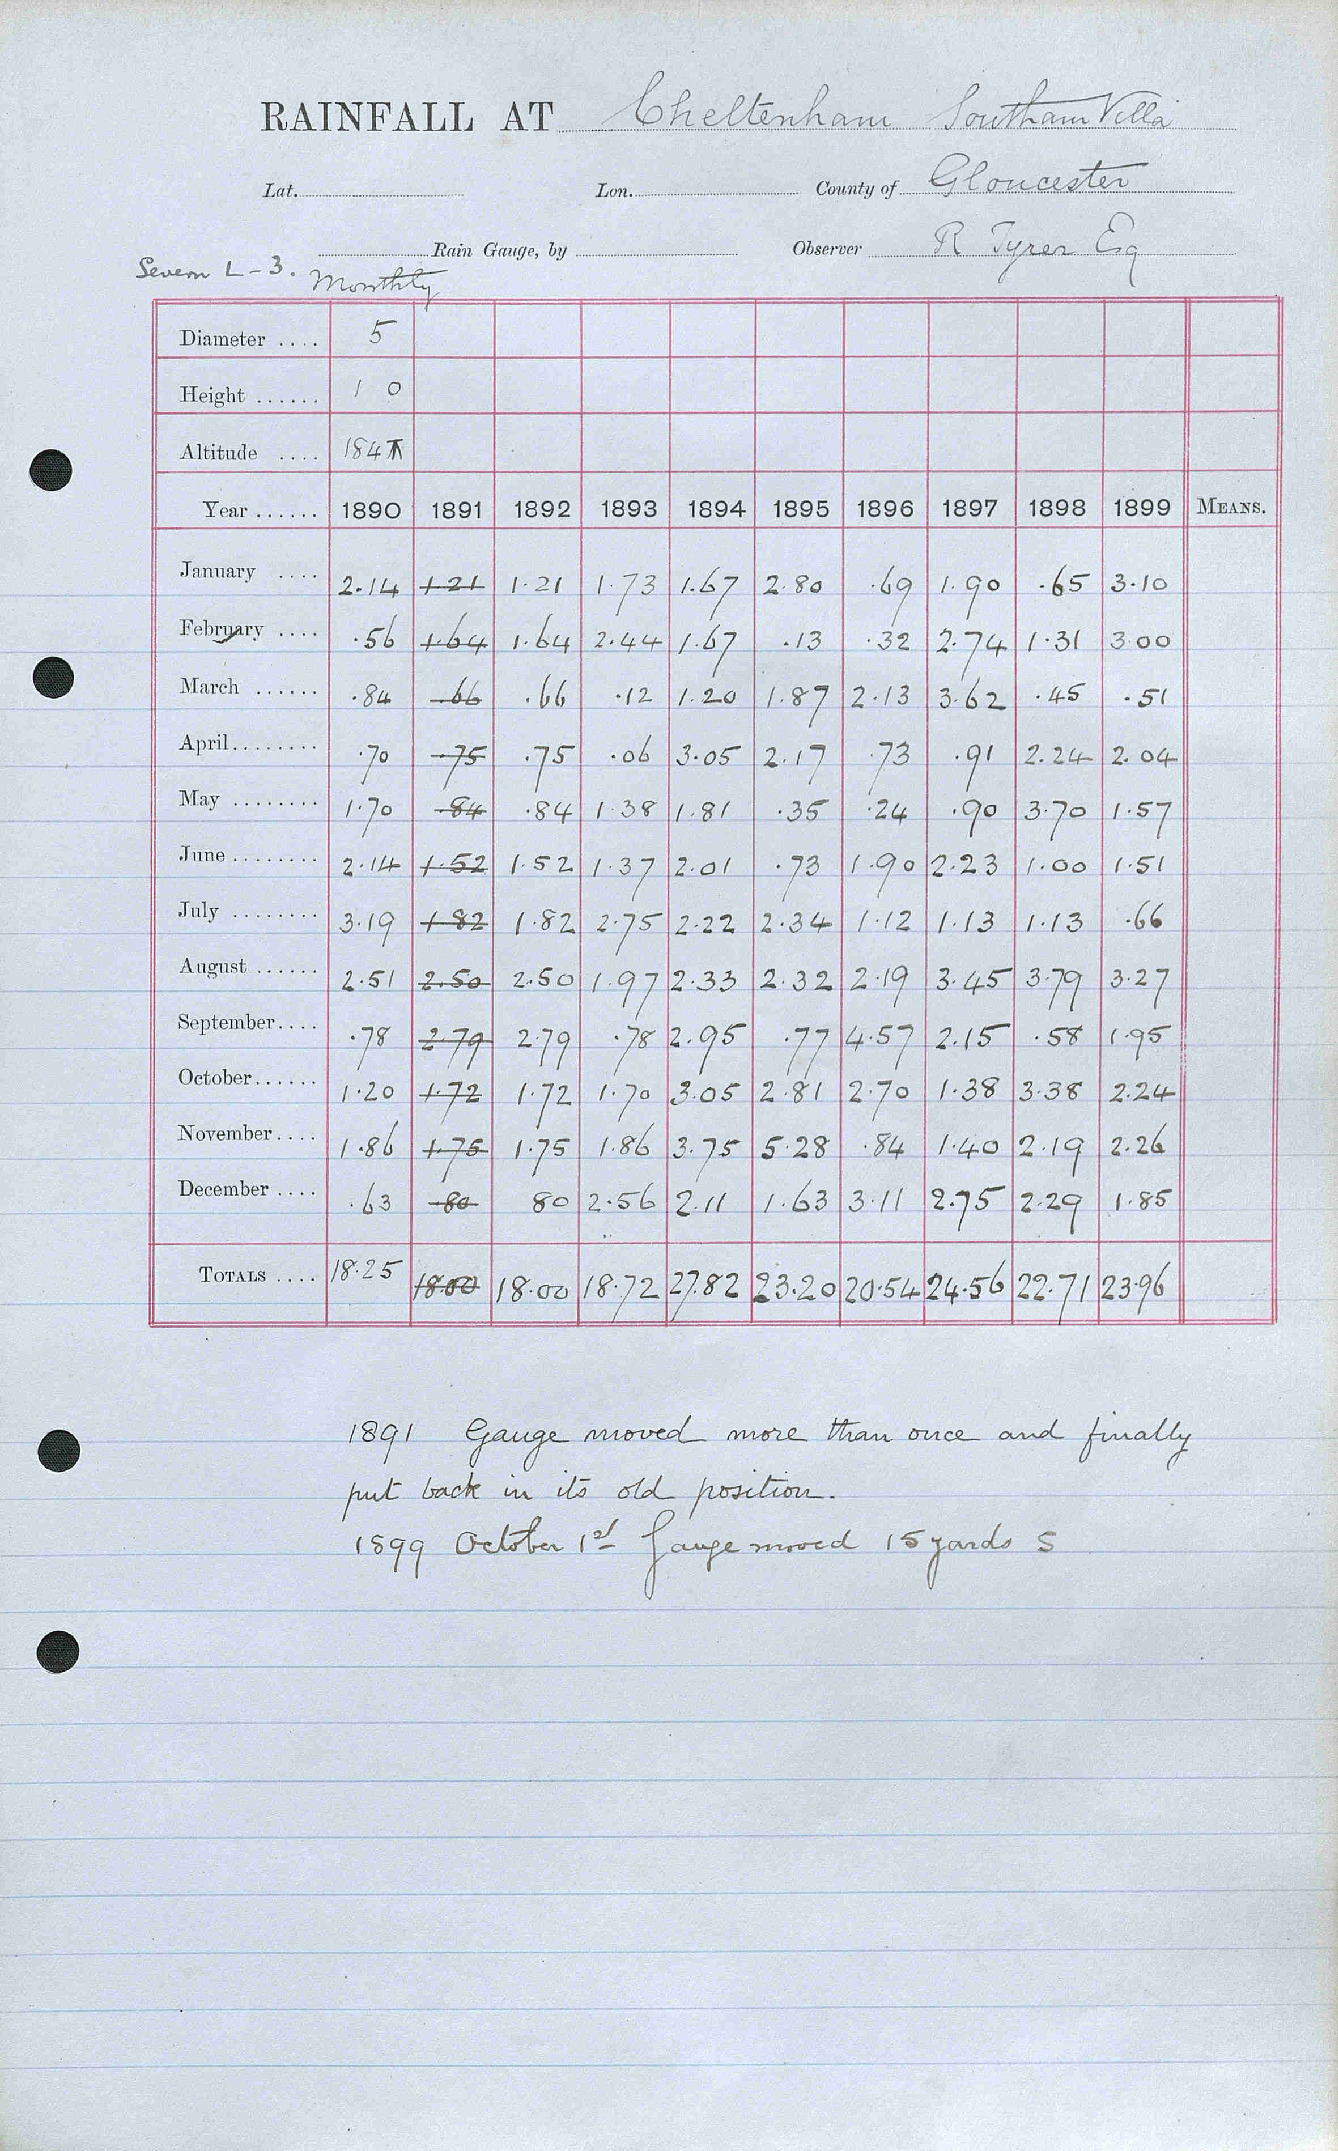 RAINFALL AT Cheltenham Southam Villa
Lat. Lon. County of Gloucester
Rain Gauge, by Observer R Tyrer Esq
Severn L - 3. Monthly
Diameter .... 5
Height ...... 1 0
Altitude .... 184
Year ...... 1890 1891 1892 1893 1894 1895 1896 1897 1898 1899 MEANS.
January .... 2.14 1.21 1.21 1.73 1.67 2.80 .69 1.90 .65 3.10
February .... .56 1.64 1.64 2.44 1.67 .13 .32 2.74 1.31 3.00
March ...... .84 .66 .66 .12 1.20 1.87 2.13 3.62 .45 .51
April........ .70 .75 .75 .06 3.05 2.17 .73 .91 2.24 2.04
May ........ 1.70 .84 .84 1.38 1.81 .35 .24 .90 3.70 1.57
June ........ 2.14 1.52 1.52 1.37 2.01 .73 1.90 2.23 1.00 1.51
July ........ 3.19 1.82 1.82 2.75 2.22 2.34 1.12 1.13 1.13 .66
August ...... 2.51 2.50 2.50 1.97 2.33 2.32 2.19 3.45 3.79 3.27
September.... .78 2.79 2.79 .78 2.95 .77 4.57 2.15 .58 1.95
October...... 1.20 1.72 1.72 1.70 3.05 2.81 2.70 1.38 3.38 2.24
November.... 1.86 1.75 1.75 1.86 3.75 5.28 .84 1.40 2.19 2.26
December .... .63 .80 80 2.56 2.11 1.63 3.11 2.75 2.29 1.85
TOTALS .... 18.25 18.00 18.00 18.72 27.82 23.20 20.54 24.56 22.71 23.96
1891 Gauge moved more than once and finally
put back in its old position.
1899 October 1st Gauge moved 15 yards S